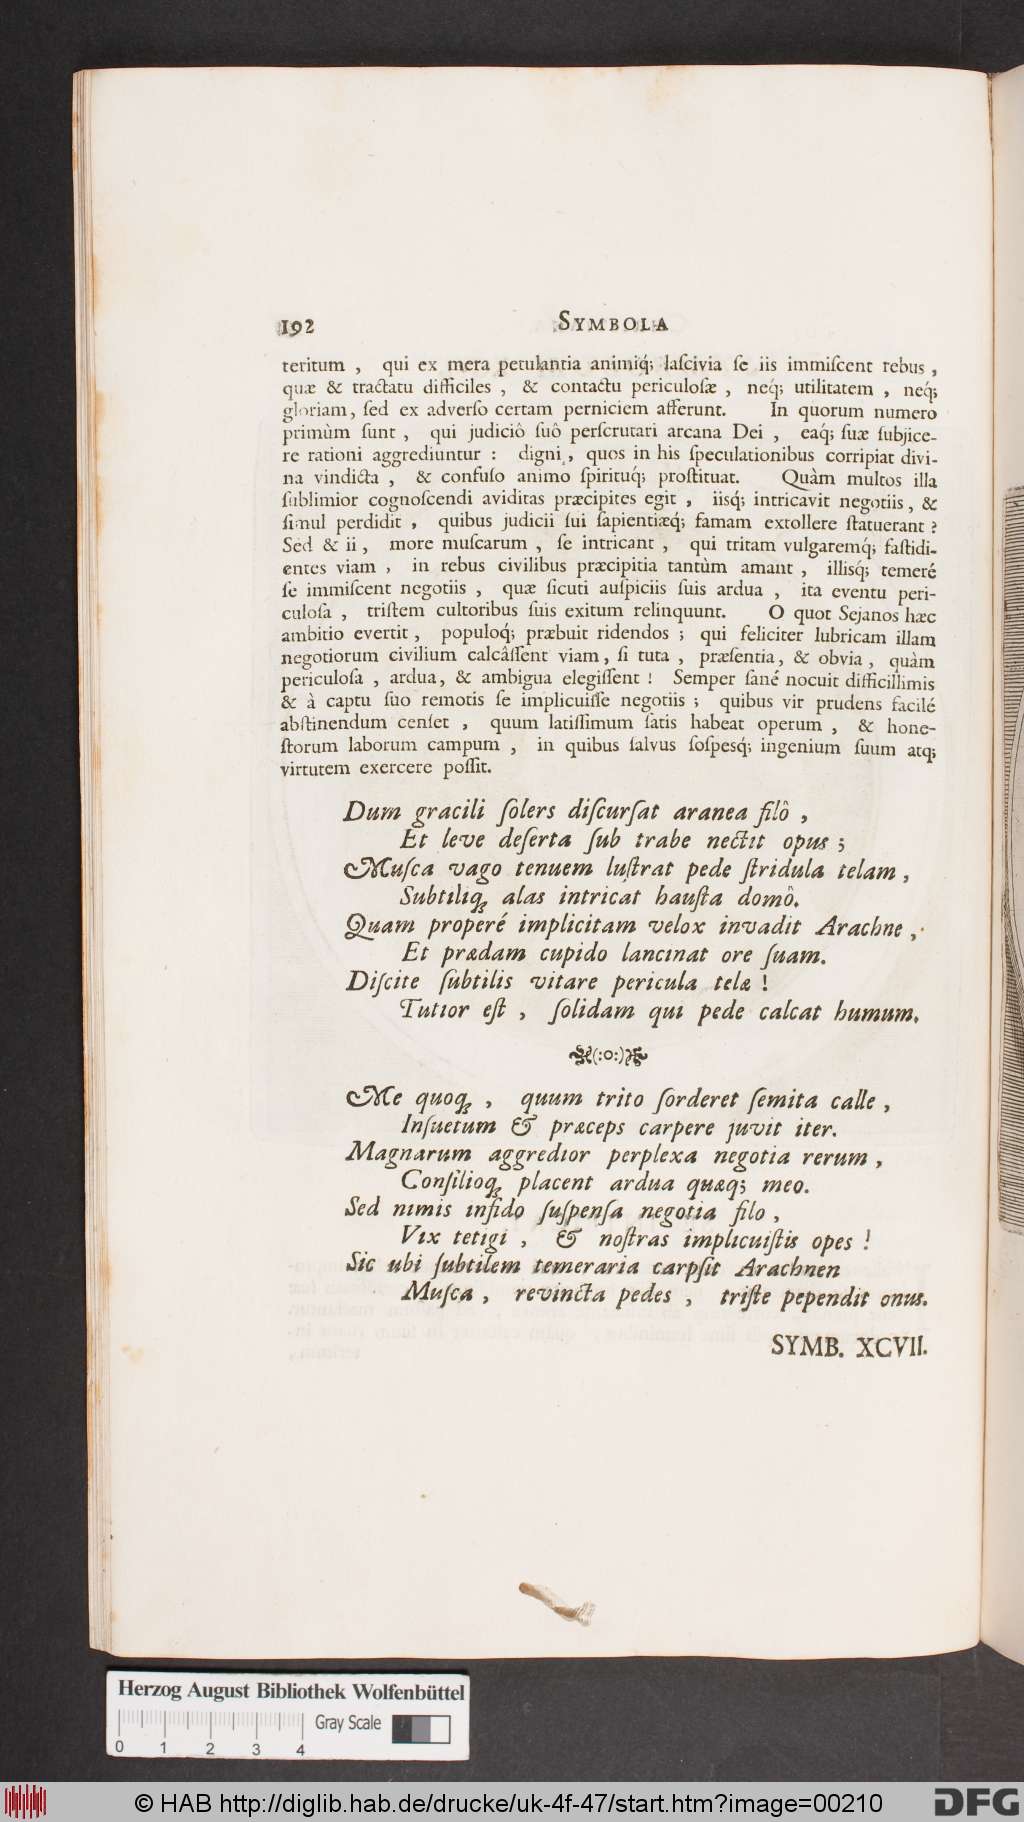 192 SYMBOLA
teritum , qui ex mera petulantia animiq́; laſcivia ſe iis immiſcent rebus ,
quæ & tractatu difficiles , & contactu periculoſæ , neq́; utilitatem , neq́;
gloriam, ſed ex adverſo certam perniciem afferunt. In quorum numero
primùm ſunt , qui judiciô ſuô perſcrutari arcana Dei , eaq́; ſuæ ſubjice-
re rationi aggrediuntur : digni , quos in his ſpeculationibus corripiat divi-
na vindicta , & confuſo animo ſpirituq́; proſtituat. Quàm multos illa
ſublimior cognoſcendi aviditas præcipites egit , iisq́; intricavit negotiis, &
ſimul perdidit , quibus judicii ſui ſapientiæq́; famam extollere ſtatuerant ?
Sed & ii , more muſcarum , ſe intricant , qui tritam vulgaremq́; faſtidi-
entes viam , in rebus civilibus præcipitia tantùm amant , illisq́; temeré
ſe immiſcent negotiis , quæ ſicuti auſpiciis ſuis ardua , ita eventu peri-
culoſa , triſtem cultoribus ſuis exitum relinquunt. O quot Sejanos hæc
ambitio evertit , populoq́; præbuit ridendos ; qui feliciter lubricam illam
negotiorum civilium calcâſſent viam, ſi tuta , præſentia, & obvia , quàm
periculoſa , ardua, & ambigua elegiſſent ! Semper ſané nocuit difficillimis
& à captu ſuo remotis ſe implicuiſſe negotiis ; quibus vir prudens facilé
abſtinendum cenſet , quum latiſſimum ſatis habeat operum , & hone-
ſtorum laborum campum , in quibus ſalvus ſoſpesq́; ingenium ſuum atq́;
virtutem exercere poſſit.
Dum gracili ſolers diſcurſat aranea filô ,
Et leve deſerta ſub trabe nectit opus ;
Muſca vago tenuem luſtrat pede ſtridula telam ,
Subtiliq; alas intricat hauſta domô.
Quam properé implicitam velox invadit Arachne ,
Et prædam cupido lancinat ore ſuam.
Diſcite ſubtilis vitare pericula telæ !
Tutior eſt , ſolidam qui pede calcat humum.
(:o:)
Me quoq; , quum trito ſorderet ſemita calle ,
Inſuetum & præceps carpere juvit iter.
Magnarum aggredior perplexa negotia rerum ,
Conſilioq; placent ardua quæq; meo.
Sed nimis infido ſuſpenſa negotia filo ,
Vix tetigi , & noſtras implicuiſtis opes !
Sic ubi ſubtilem temeraria carpſit Arachnen
Muſca , revincta pedes , triſte pependit onus.
SYMB. XCVII.
Herzog August Bibliothek Wolfenbüttel
Gray Scale
0 1 2 3 4
© HAB http://diglib.hab.de/drucke/uk-4f-47/start.htm?image=00210
DFG